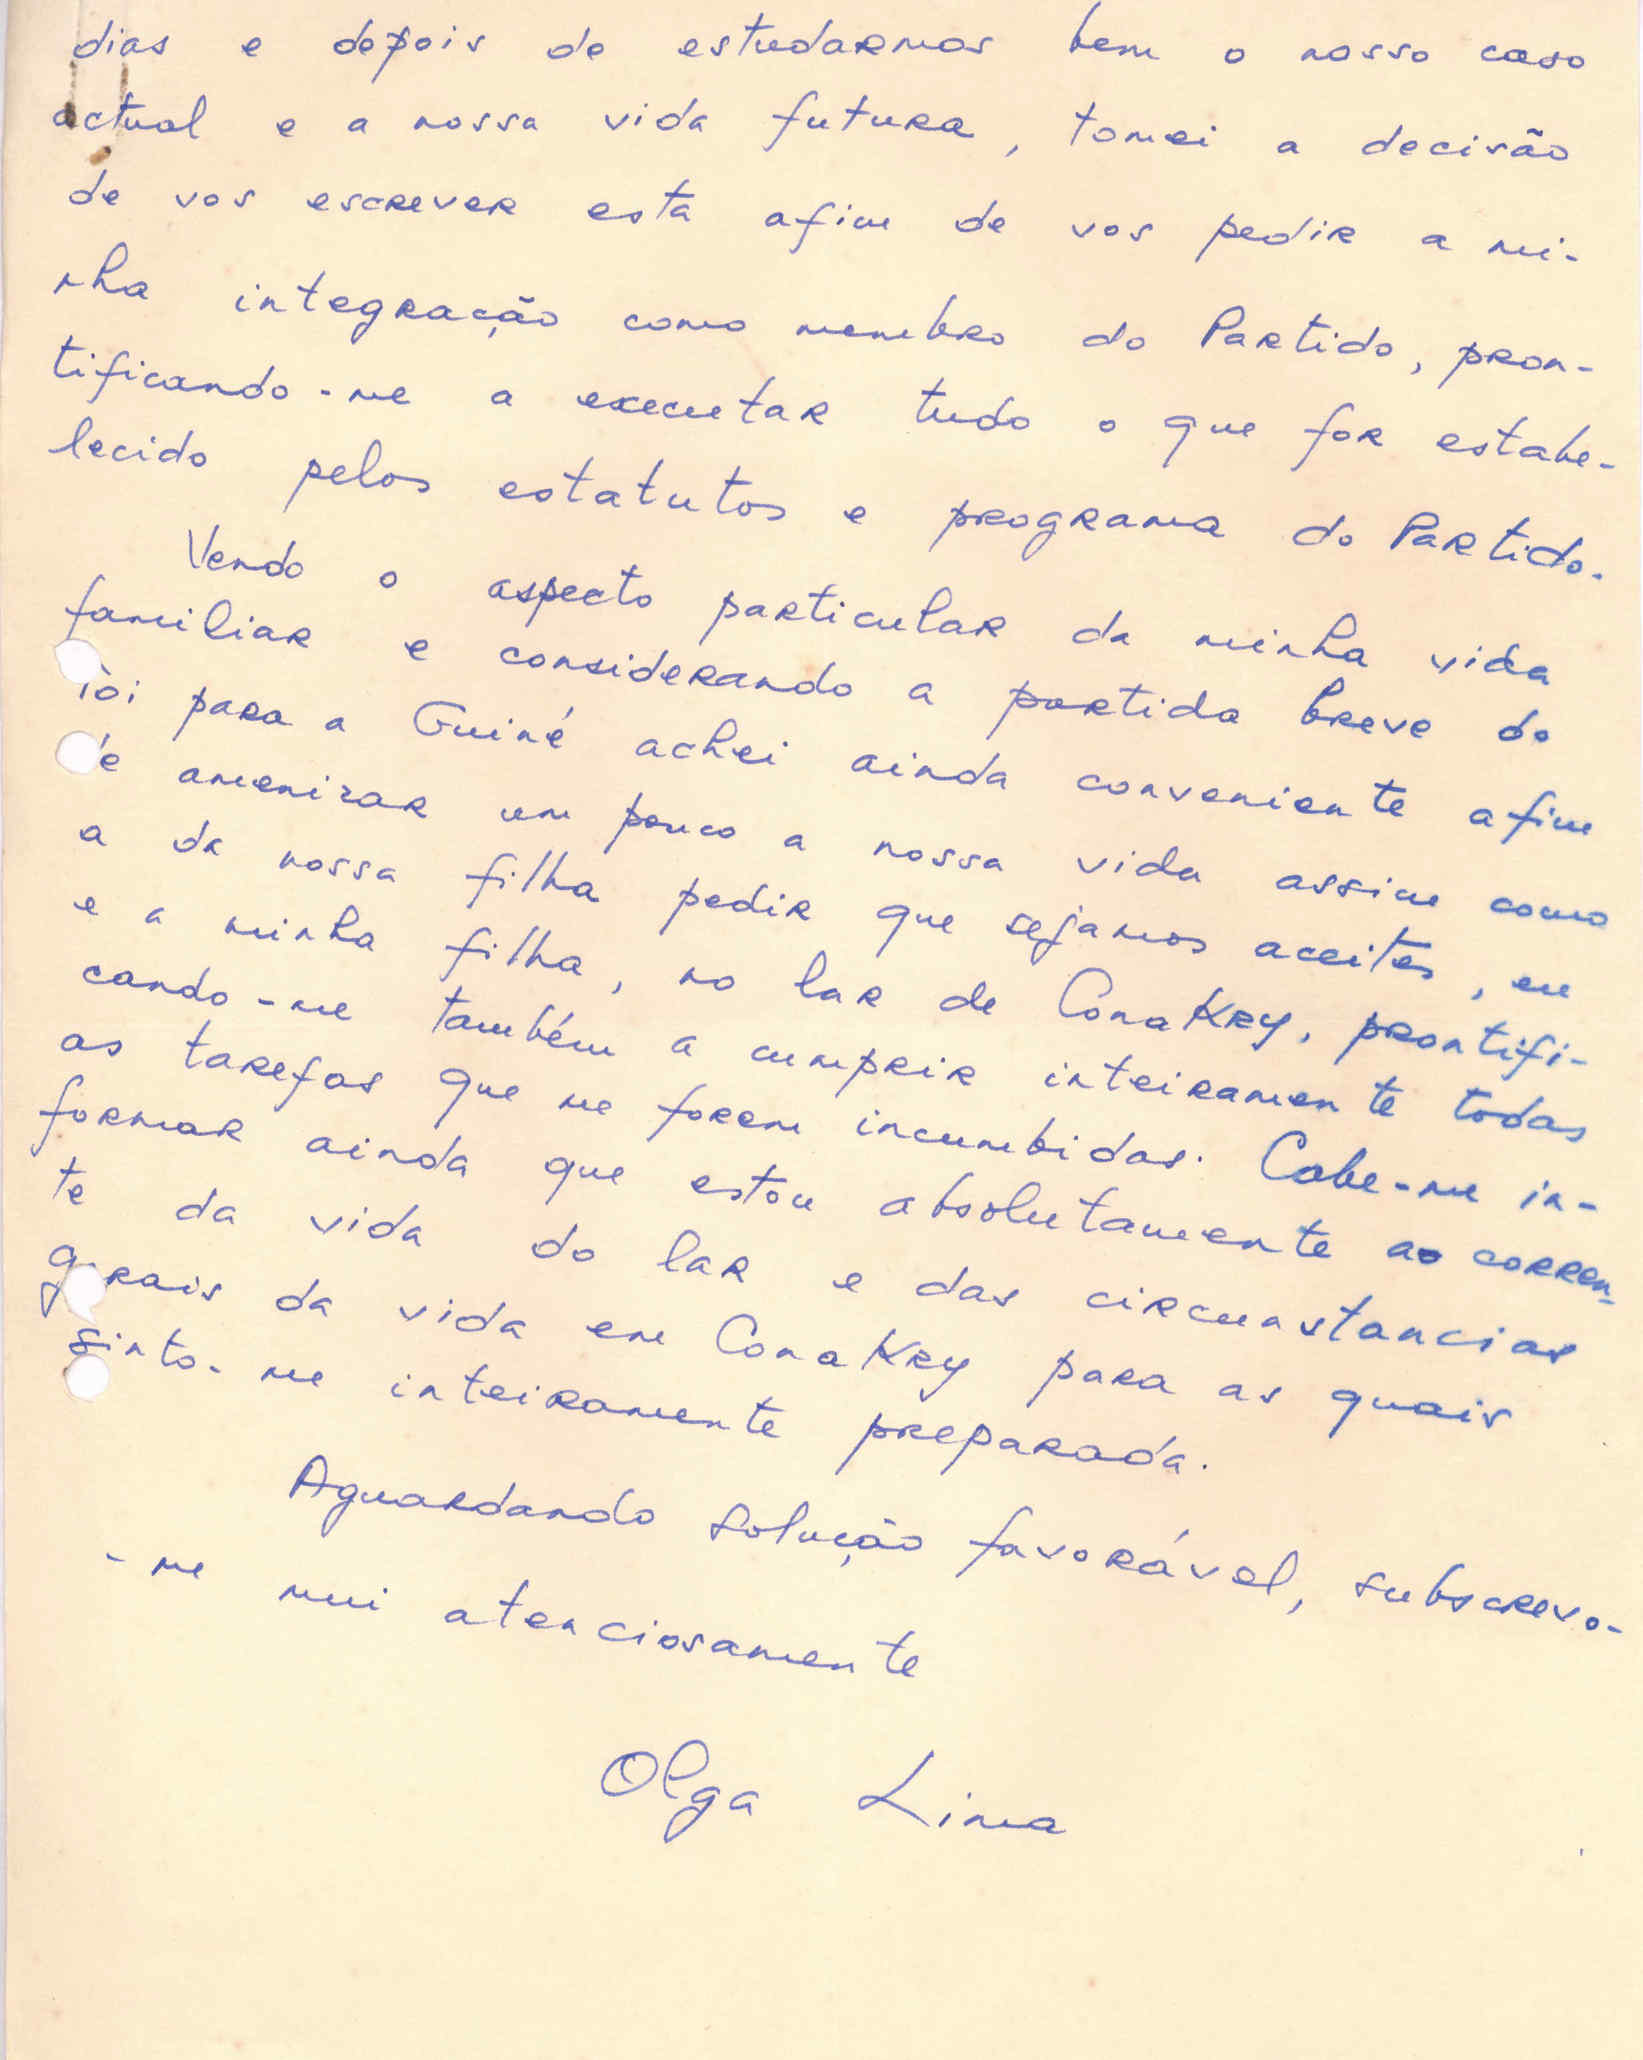 dias e depois de estudarmos bem o nosso caso
actual e a nossa vida futura, tomei a decisão
de vos escrever esta afim de vos pedir a mi-
nha integração como membro do Partido, pron-
tificando-me a executar tudo o que for estabe-
lecido pelos estatutos e programa do Partido.
Vendo o aspecto particular da minha vida
familiar e considerando a partida breve do
Tói para a Guiné achei ainda conveniente afim
de amenizar um pouco a nossa vida assim como
a da nossa filha pedir que sejamos aceites, eu
e a minha filha, no lar de Conakry, prontifi-
cando-me também a cumprir inteiramente todas
as tarefas que me forem incumbidas. Cabe-me in-
formar ainda que estou absolutamente ao corren-
te da vida do lar e das circunstancias
gerais da vida em Conakry para as quais
sinto-me inteiramente preparada.
Aguardando solução favorável, subscrevo-
-me mui atenciosamente
Olga Lima